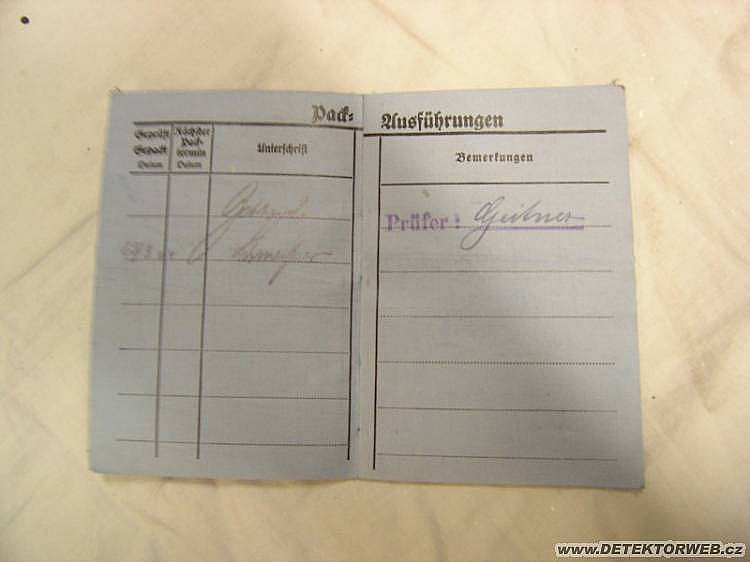 Pack-Ausführungen
Geprüft Gepackt Datum
Nächster Pack-termin Datum
Unterschrift
Bemerkungen
Prüfer: Geitner
www.DETEKTORWEB.cz